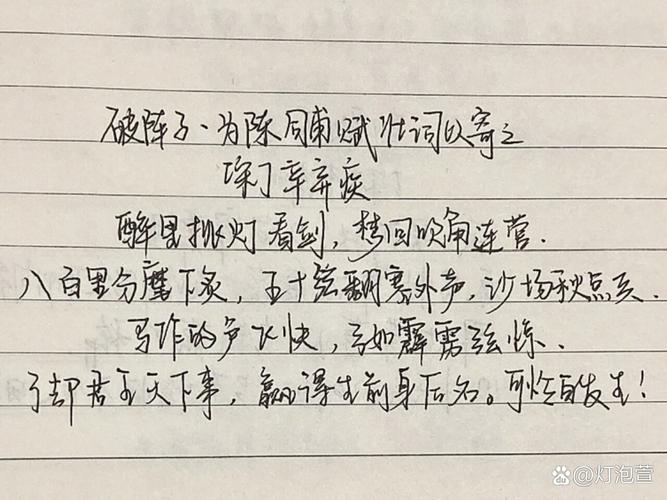 破阵子·为陈同甫赋壮词以寄之
宋丁辛弃疾
醉里挑灯看剑，梦回吹角连营.
八百里分麾下炙，五十弦翻塞外声，沙场秋点兵.
马作的卢飞快，弓如霹雳弦惊.
了却君王天下事，赢得生前身后名。可怜白发生！
灯泡萱